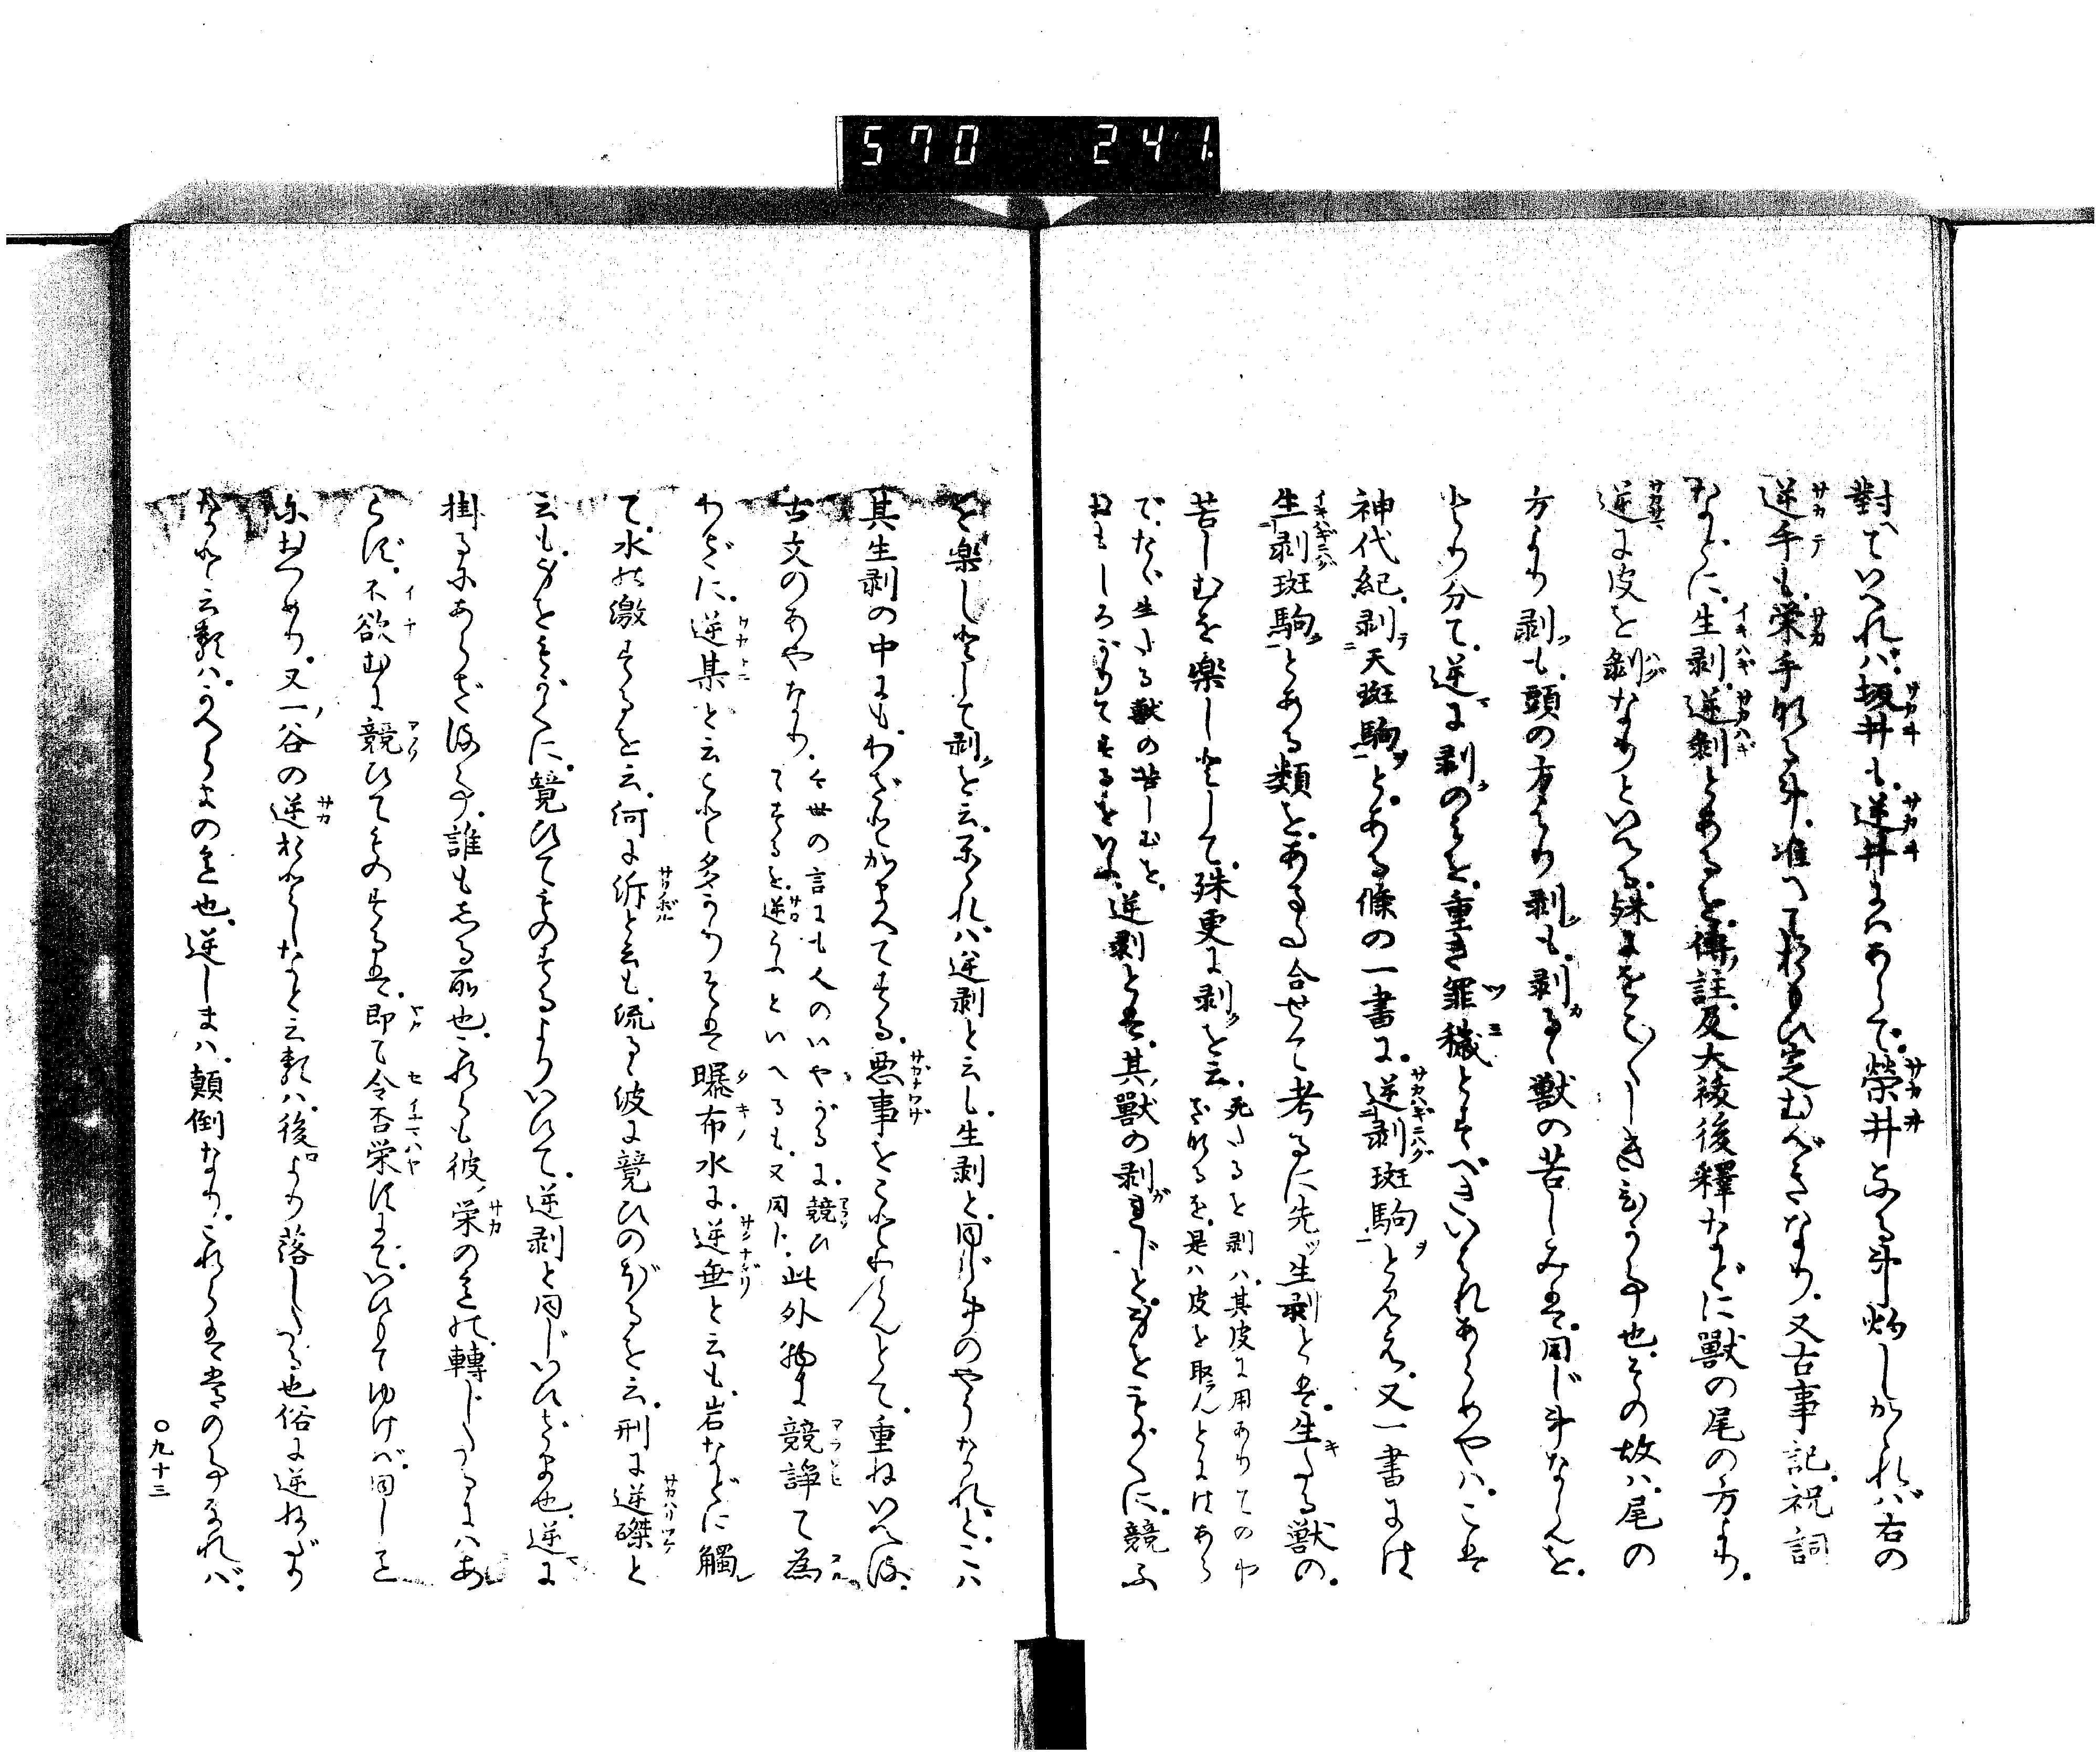 570 241.
對へていへれバ坂井も逆井まハあらで榮井なる事灼しかれバ右の
逆手も栄手なる事准へて思ひ定むべきなり又古事記祝詞
などに生剥逆剥とあるを傳註及大祓後釋などに獣の尾の方より
逆に皮を剝なりといへる殊にをこ〱しきひが事也その故ハ尾の
方より剥も頭の方より剥も剥るゝ獣の苦しみは同じ事ならんを
とり分て逆に剥のミを重き罪穢とすべきいはれあらめやハこは
神代紀剥天斑駒とある條の一書に逆剥斑駒と見え又一書には
生剥斑駒とある類をあまた合せて考るに先生剥とは生たる獣の
苦しむを楽しとして殊更に剥を云死たるを剥ハ其皮に用ありての事
なるを是ハ皮を取んとにはあら
でたゞ生たる獣の苦しむを
おもしろがりてするをいふ逆剥とは其獣の剥れじと身をもがくに競ふ
を楽しとして剥を云されバ逆剥と云も生剥と同じ事のやうなれどこハ
其生剥の中にもわざとかまへてする悪事をことわらんとて重ねいへる
古文のあやなり今世の言にも人のいやがるに競ひ
てするを逆らふといへるも又同ト此外物に競諍て為
わざに逆某と云こと多かりそは曝布水に逆垂と云も岩などに觸
て水の激するを云何に泝と云も流るゝ波に競ひのぼるを云刑に逆磔と
云も身をもがくに競ひてものするよりいひて逆剥と同じいひざま也逆に
掛るにあらざる事誰もしる所也これらも彼栄の意の轉じたるにハあ
らず不欲むに競ひてものするは即て令否栄すまでいひもてゆけバ同じこと
におつめり又一谷の逆おとしなど云類ハ後より落したる也俗に逆ねだり
など云類ハかへさまの意也逆しまハ顛倒なりこれらは常の事なれバ
〇九十三